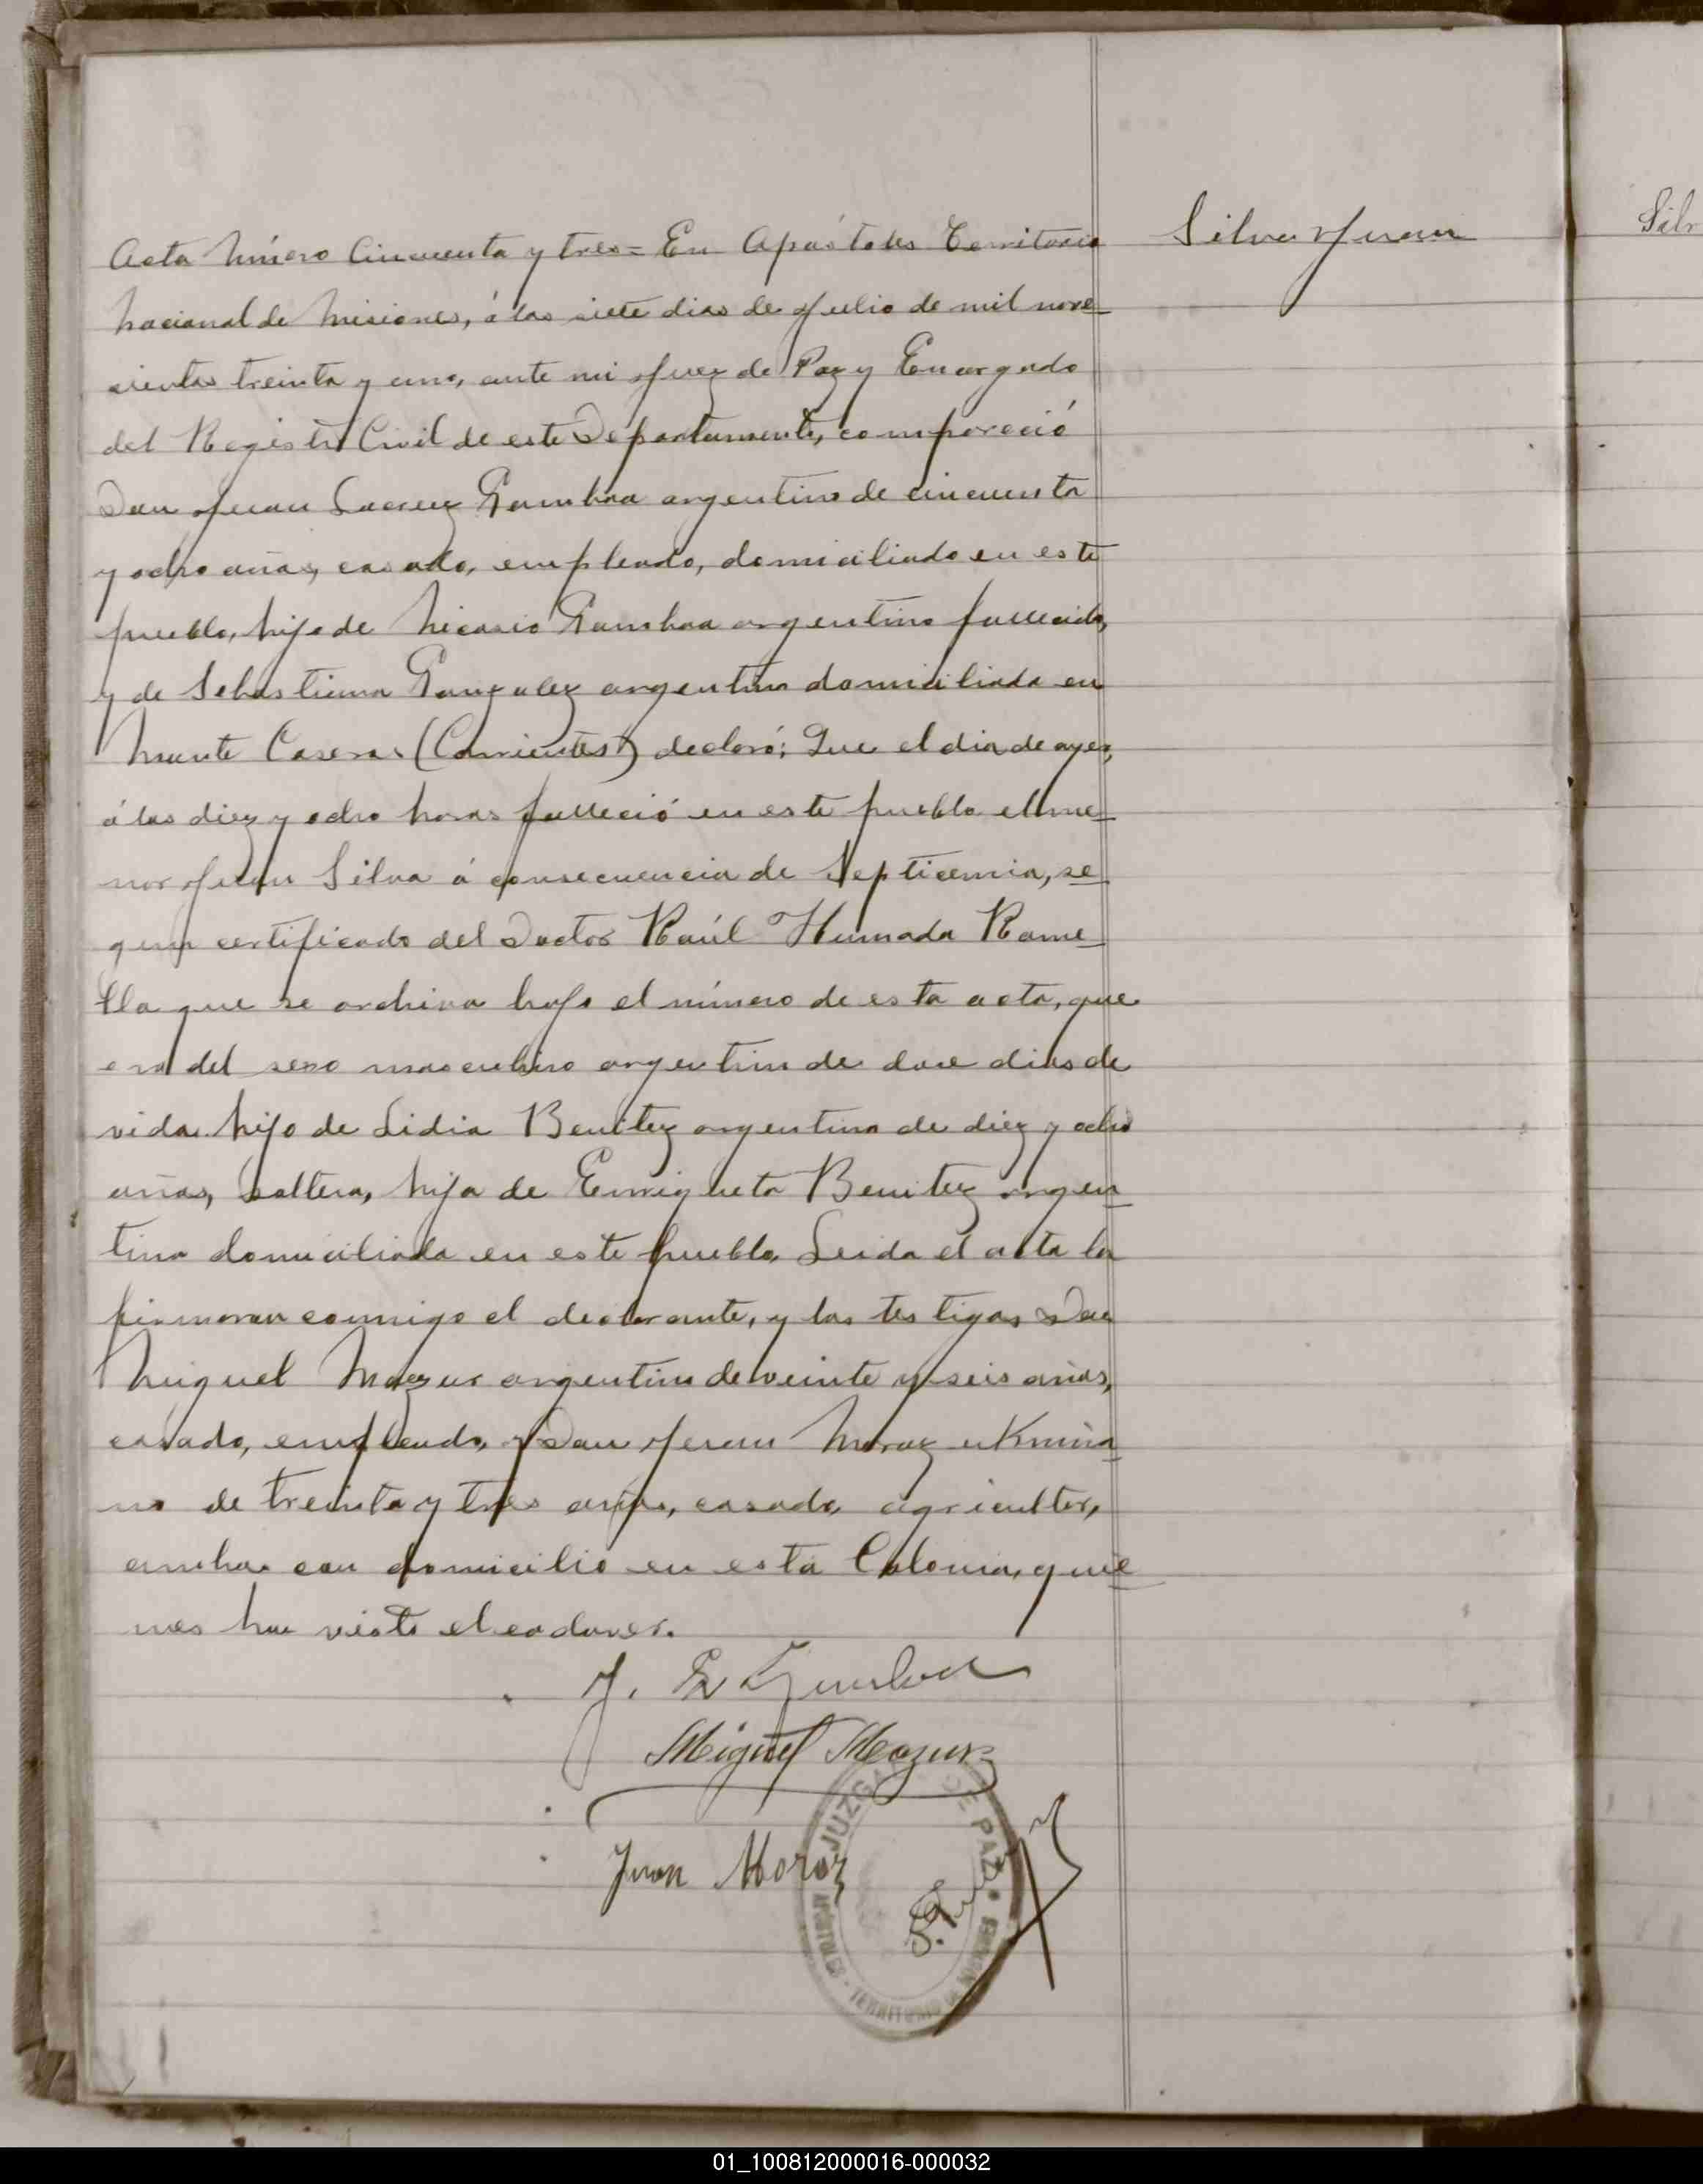 Acta Número Cincuenta y tres= En Apóstoles Territorio
Nacional de Misiones, á los siete dias de Julio de mil nove-
cientos treinta y uno, ante mi Juez de Paz y Encargado
del Registro Civil de este Departamento, compareció
Don Juan Gamboa argentino de cincuenta
y ocho años, casado, empleado, domiciliado en este
pueblo, hijo de Nicasio Gamboa argentino fallecido,
y de Sebastiana Gonzalez argentina domiciliada en
Monte Caseros (Corrientes) declaró: Que el dia de ayer,
á las diez y ocho horas falleció en este pueblo el me-
nor Juan Silva á consecuencia de Septicemia, se-
gun certificado del Doctor Raúl Humada Rame-
lla que se archiva bajo el número de esta acta, que
era del sexo masculino argentino de doce dias de
vida hijo de Lidia Benitez argentina de diez y ocho
años, soltera, hija de Enriqueta Benitez argen-
tina domiciliada en este pueblo. Leida el acta la
firmaron conmigo el declarante, y los testigos Don
Miguel Mazur argentino de veinte y seis años,
casado, empleado, y Don Juan Moroz ukrania-
no de treinta y tres años, casado, agricultor,
ambos con domicilio en esta Colonia, quie-
nes han visto el cadaver.
Silva Juan
Silv
J. Gamboa
Miguel Mazur
Juan Moroz
JUZGADO DE PAZ
APÓSTOLES - TERRITORIO DE MISIONES
01_100812000016-000032